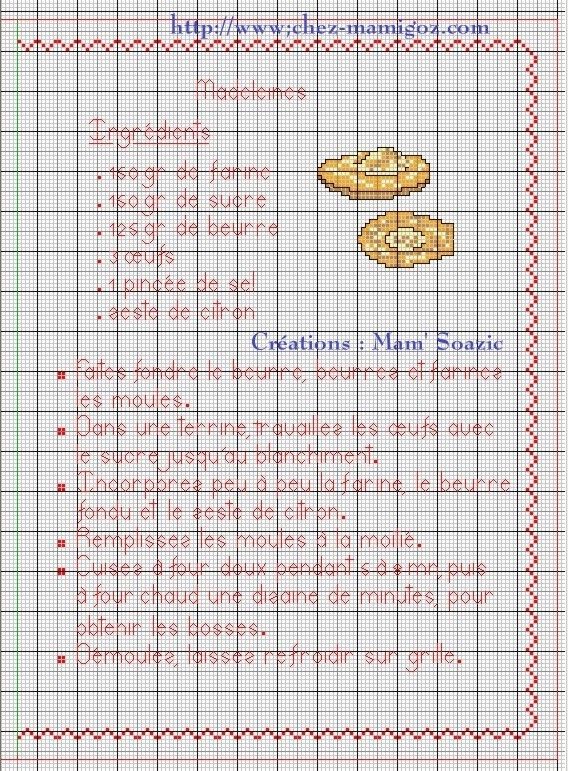 http://www;chez-mamigoz.com
Madeleines
Ingrédients
. 150 gr de farine
. 150 gr de sucre
. 125 gr de beurre
. 3 œufs
. 1 pincée de sel
. zeste de citron
Créations : Mam' Soazic
Faites fondre le beurre, beurrez et farinez
les moules.
Dans une terrine, travaillez les œufs avec
le sucre jusqu'au blanchiment.
Incorporez peu à peu la farine, le beurre
fondu et le zeste de citron.
Remplissez les moules à la moitié.
Cuisez à four doux pendant 5 à 8 mn, puis
à four chaud une dizaine de minutes, pour
obtenir les bosses.
Démoulez, laissez refroidir sur grille.